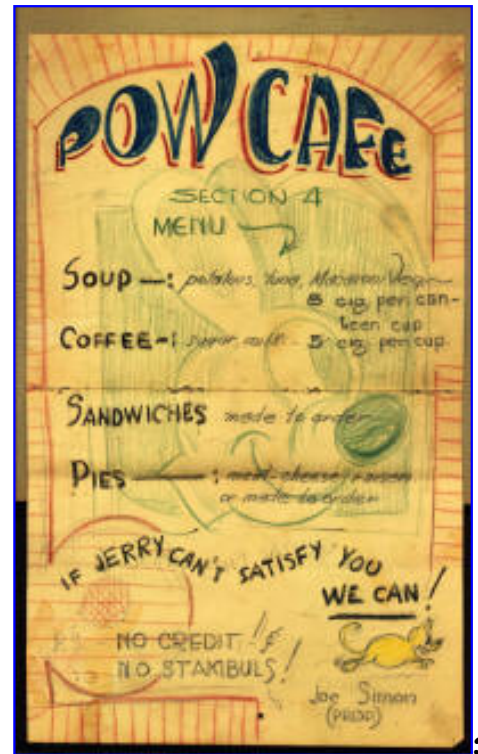 POW CAFE
SECTION 4
MENU
SOUP —: potatoes, tuna, Macaroni, Veg.
8 cig. per can-
teen cup
COFFEE -: sugar, milk - 5 cig. per cup.
SANDWICHES made to order
PIES ——— : meat, cheese, raisen
or made to order
IF JERRY CAN'T SATISFY YOU
WE CAN!
NO CREDIT !
NO STAMBULS!
Joe Simon
(PROP)